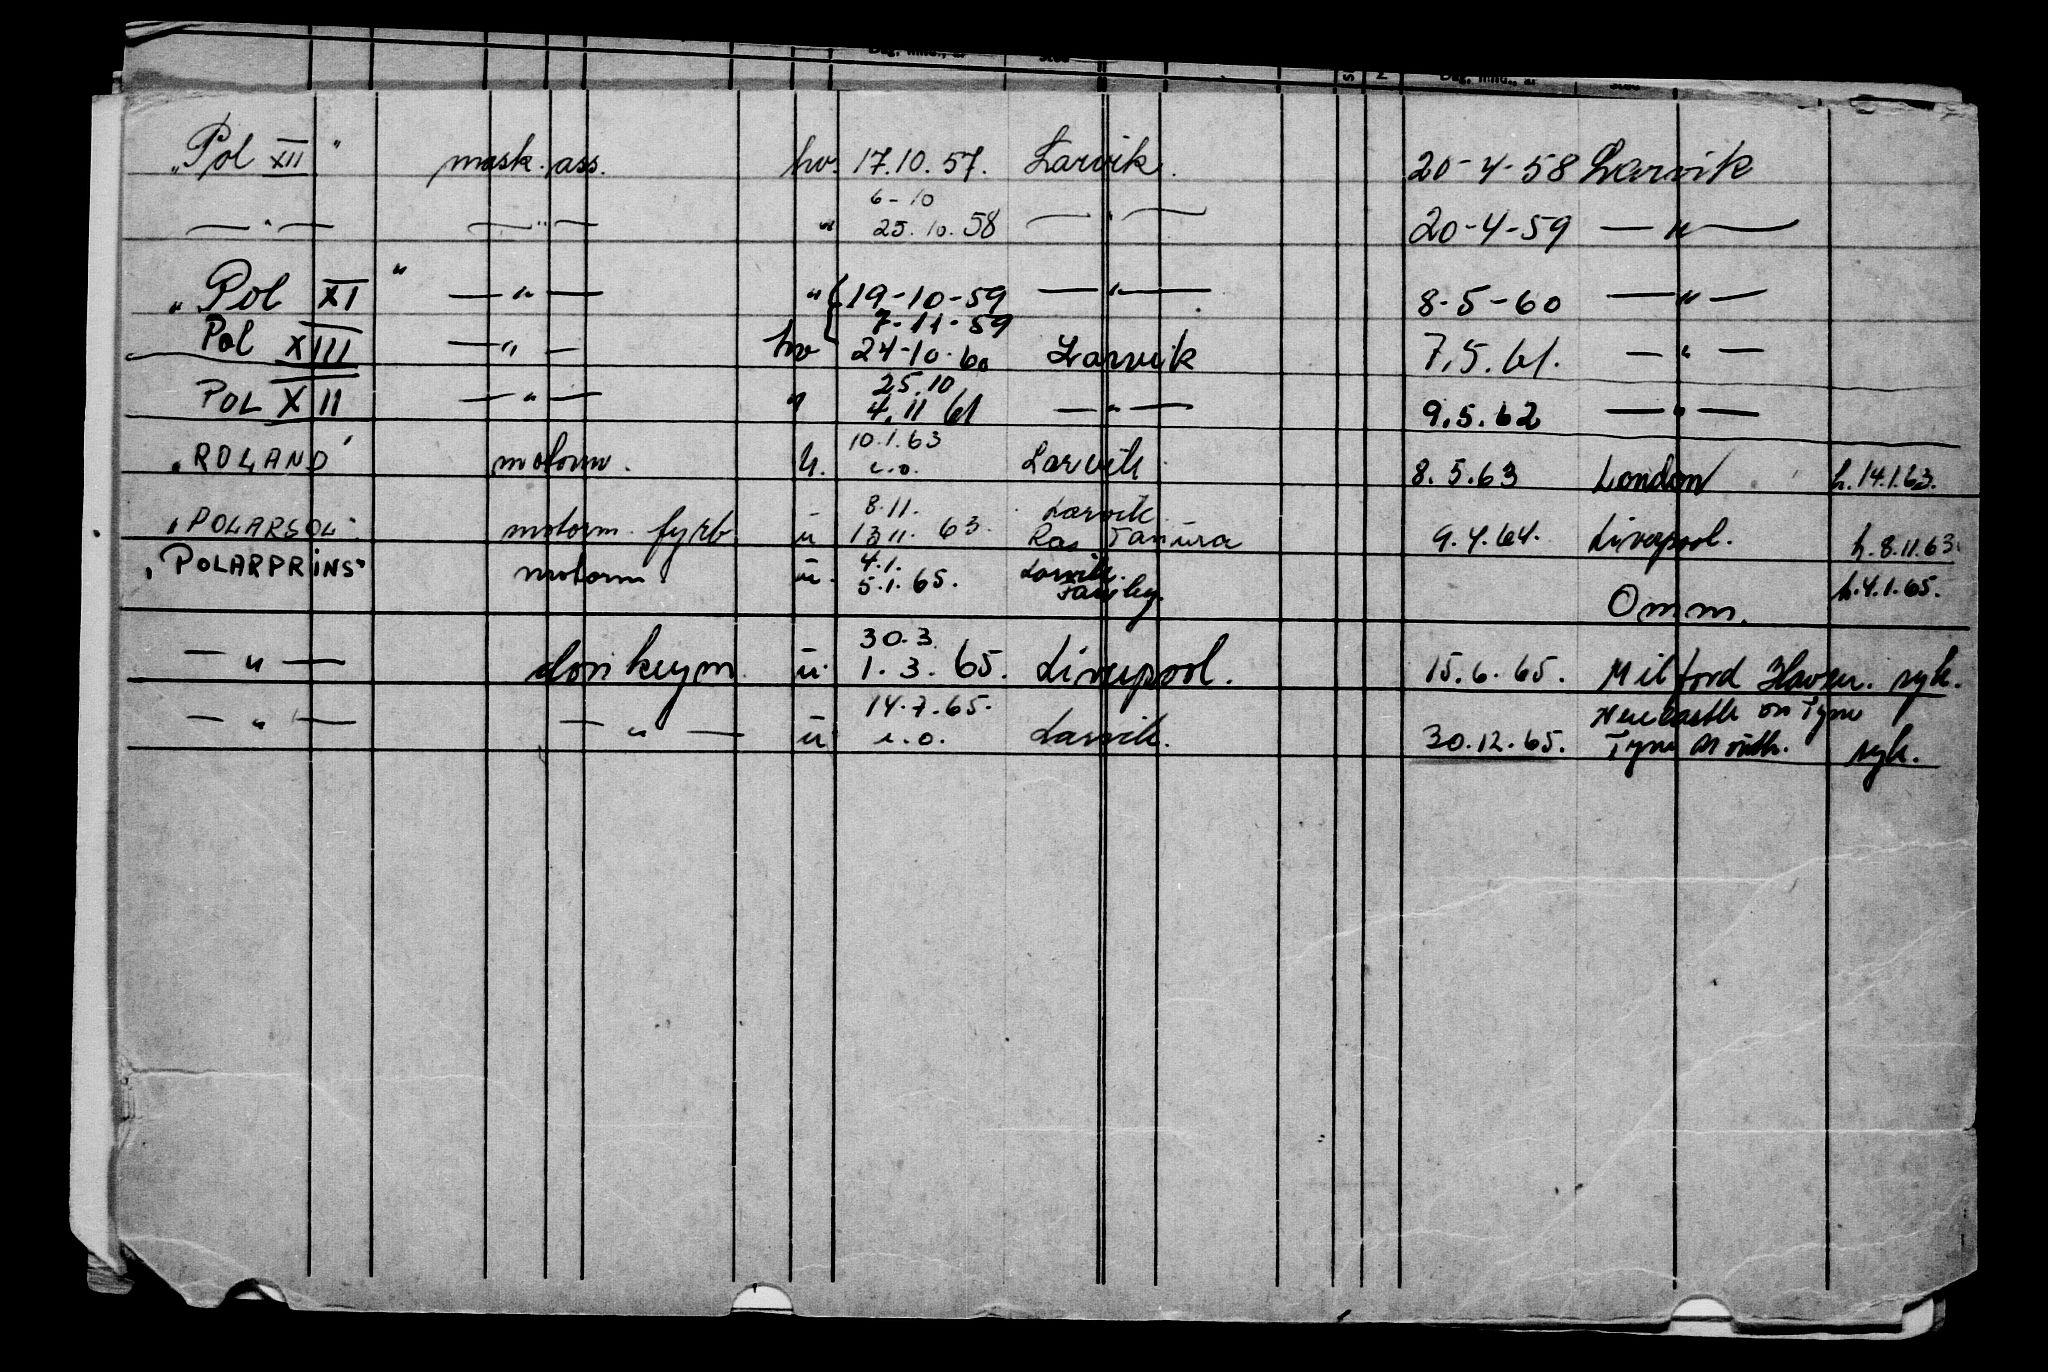 "Pol XII" mask. ass. hv. 17.10.57. Larvik. 20-4-58 Larvik
6-10
— " — — " — " 25.10.58 — " — 20-4-59 — " —
"Pol XI" — " — " 19-10-59 — " — 8-5-60 — " —
7-11-59
Pol XIII — " — hv 24-10-60 Larvik 7.5.61. — " —
25.10
POL XII — " — " 4.11 61 — " — 9.5.62 — " —
10.1.63
"ROLAND" motorm. u. i.o. Larvik. 8.5.63 London h.14.1.63.
8.11. Larvik
"POLARSOL" motorm. fyrb. u 13.11.63. Ras Tanura 9.4.64. Liverpool. h.8.11.63.
4.1. Larvik.
"POLARPRINS" motorm. u. 5.1.65. h.4.1.65.
Omm.
30.3.
— " — donkeym. u. 1.3.65. Liverpool. 15.6.65. Milford Haven. syk.
14.7.65. Newcastle on Tyne
— " — — " — u i.o. Larvik. 30.12.65. syk.